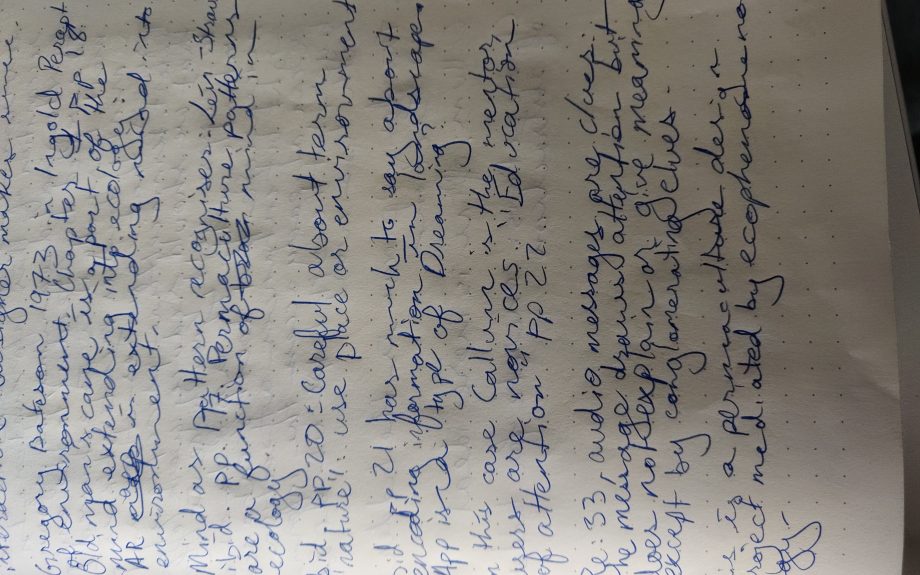 designer makes
Gregory Bateson 1973 in Ingold Percept
of Environment. Chapter 1 pp 18
Old man's cane is a part of the
mind extending into ecology
AR extending mind into
environment.
Mind as Pattern recogniser. Levi-Strau
ibid. pp 17 Permaculture patterns
are a function of mind in
ecology
ibid PP 20: Careful about term
'nature': use place or environment
ibid pp 21 has much to say about
encoding information in landscape.
App is a type of Dreaming.
In this case Callum is the mentor,
users are novices. "Education
of attention" pp 22.
Re: 33 audio messages are clues:
the message draws attention but
does not explain or give meaning
except by conglomerating clues.
is a permaculture design
project mediated by ecophenomeno
logy.